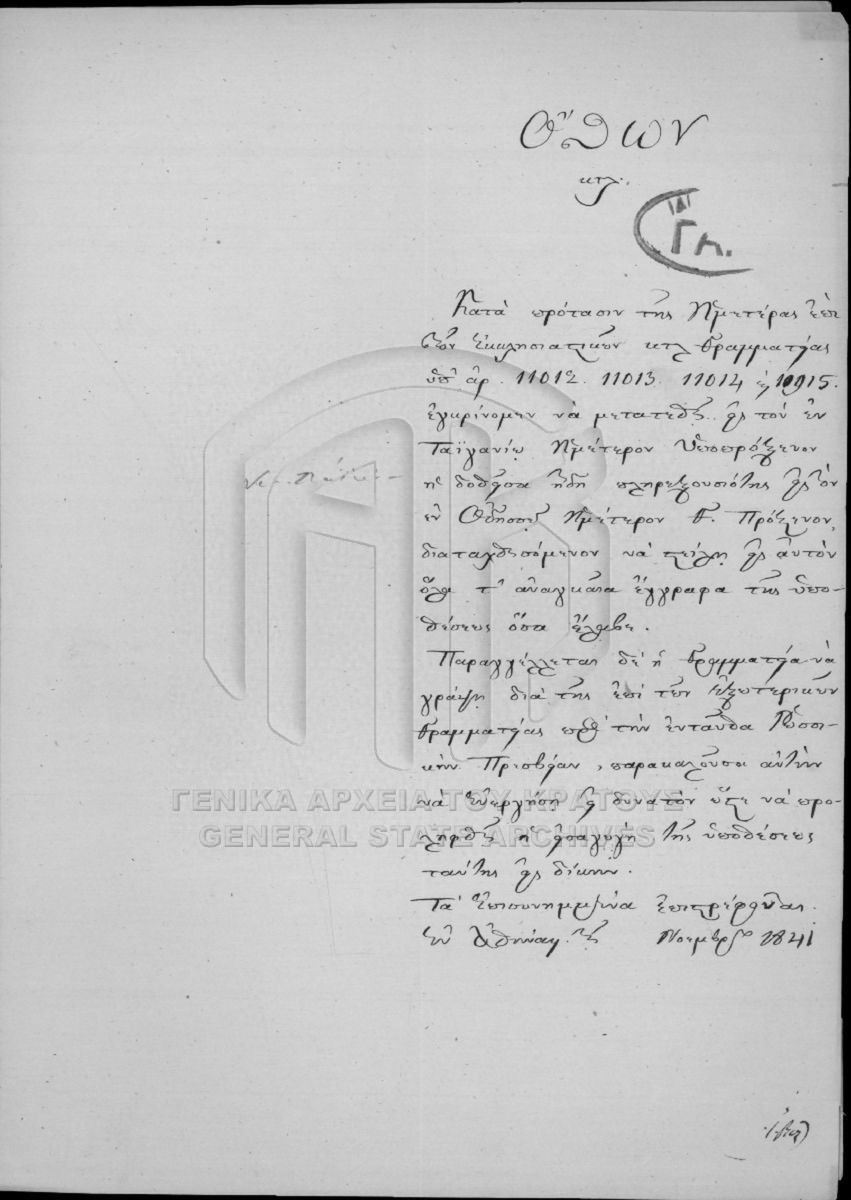 Ὄθων
κτλ.
Γη.
Κατὰ πρότασιν τῆς Ἡμετέρας ἐπὶ
τῶν Ἐκκλησιαστικῶν κτλ Γραμματείας
ὑπ' ἀρ. 11012. 11013. 11014 καὶ 11015.
ἐγκρίνομεν νὰ μετατεθῇ εἰς τὸν ἐν
Ταϊγανίῳ Ἡμέτερον Ὑποπρόξενον
ἡ δοθεῖσα ἤδη πληρεξουσιότης εἰς τὸν
ἐν Ὀδησσῷ Ἡμέτερον Γ. Πρόξενον,
διαταχθησόμενον νὰ στείλῃ εἰς αὐτὸν
ὅλα τ' ἀναγκαῖα ἔγγραφα τῆς ὑπο-
θέσεως ὅσα ἔλαβε.
Παραγγέλλεται δὲ ἡ Γραμματεία νὰ
γράψῃ διὰ τῆς ἐπὶ τῶν Ἐξωτερικῶν
Γραμματείας πρὸς τὴν ἐνταῦθα Ῥωσσι-
κὴν Πρεσβείαν, παρακαλοῦσα αὐτὴν
νὰ ἐνεργήσῃ εἰ δυνατὸν ὥστε νὰ προ-
ληφθῇ ἡ εἰσαγωγὴ τῆς ὑποθέσεως
ταύτης εἰς δίκην.
Τὰ ἐπισυνημμένα ἐπιστρέφονται.
Ἐν Ἀθήναις τῇ Νοεμβρίου 1841
ΓΕΝΙΚΑ ΑΡΧΕΙΑ ΤΟΥ ΚΡΑΤΟΥΣ
GENERAL STATE ARCHIVES